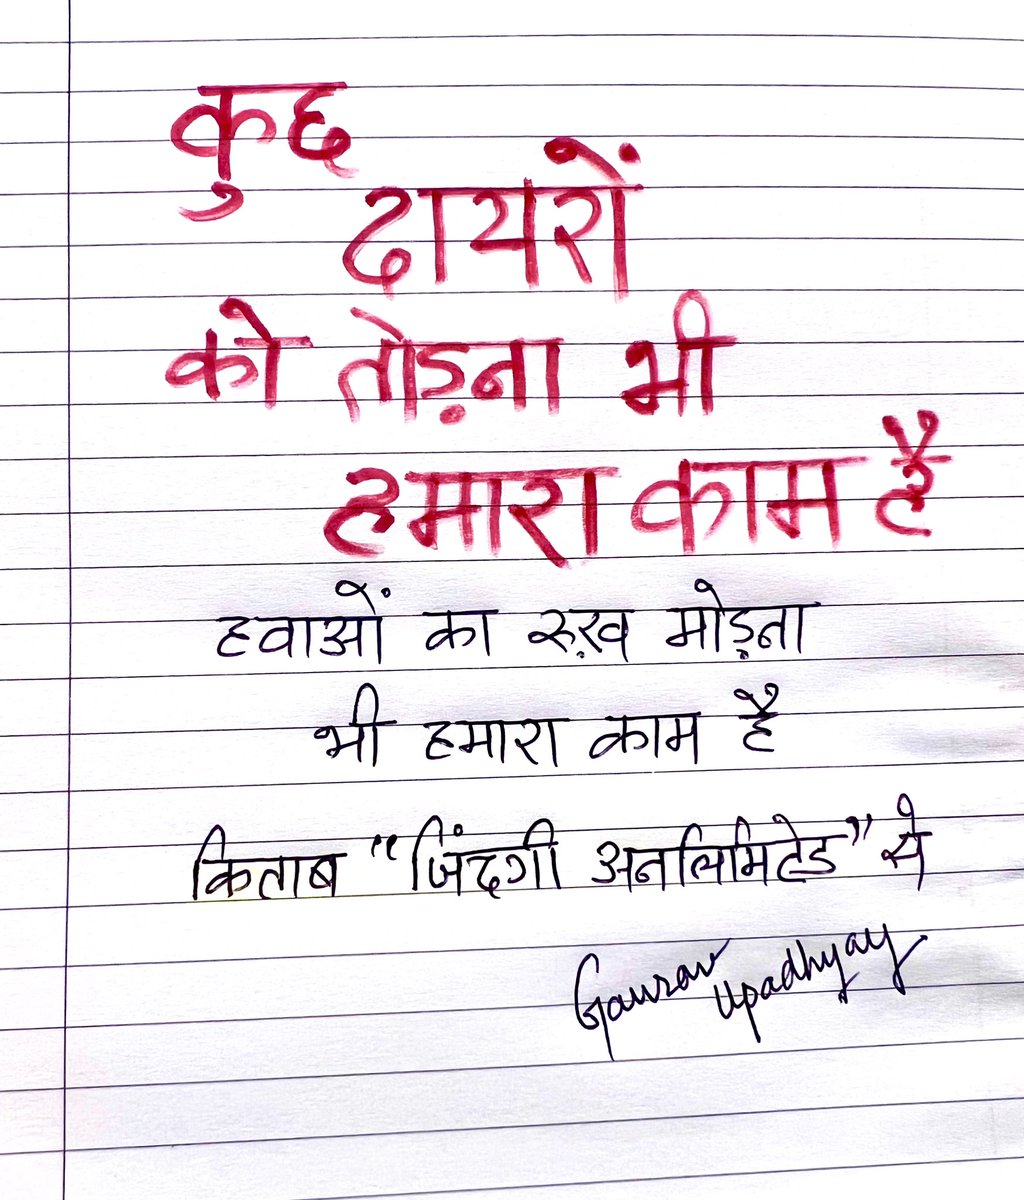 कुछ
दायरों
को तोड़ना भी
हमारा काम है
हवाओं का रुख़ मोड़ना
भी हमारा काम है
किताब “जिंदगी अनलिमिटेड” से
Gaurav Upadhyay